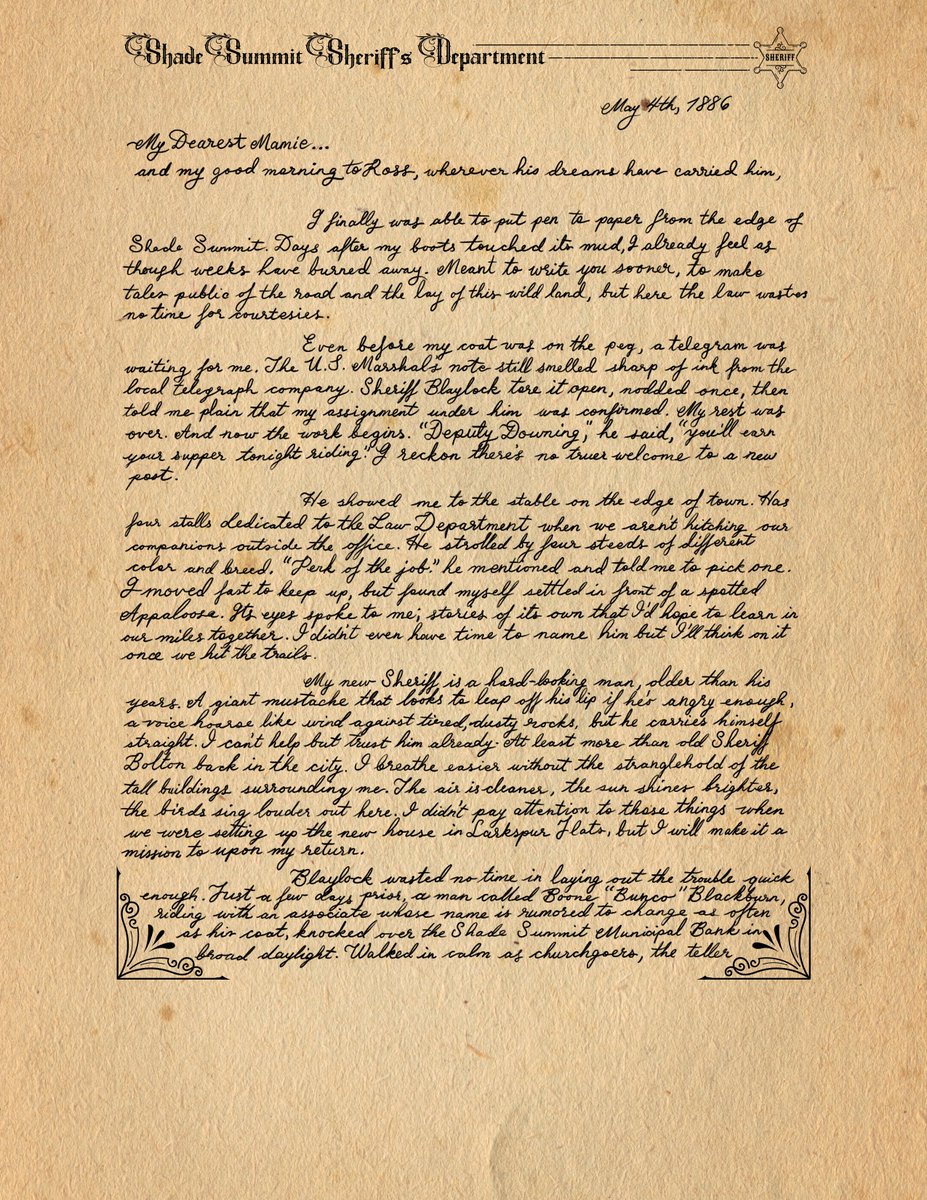 Shade Summit Sheriff's Department
SHERIFF
May 4th, 1886
My Dearest Mamie...
and my good morning to Ross, wherever his dreams have carried him,
I finally was able to put pen to paper from the edge of
Shade Summit. Days after my boots touched its mud, I already feel as
though weeks have burned away. Meant to write you sooner, to make
tales public of the road and the lay of this wild land, but here the law wastes
no time for courtesies.
Even before my coat was on the peg, a telegram was
waiting for me. The U.S. Marshal's note still smelled sharp of ink from the
local telegraph company. Sheriff Blaylock tore it open, nodded once, then
told me plain that my assignment under him was confirmed. My rest was
over. And now the work begins. "Deputy Downing", he said, "you'll earn
your supper tonight riding." I reckon there's no truer welcome to a new
post.
He showed me to the stable on the edge of town. Has
four stalls dedicated to the Law Department when we aren't hitching our
companions outside the office. He strolled by four steeds of different
color and breed. "Perk of the job." he mentioned and told me to pick one.
I moved fast to keep up, but found myself settled in front of a spotted
Appaloosa. It's eyes spoke to me; stories of its own that I'd hope to learn in
our miles together. I didn't even have time to name him but I'll think on it
once we hit the trails.
My new Sheriff is a hard-looking man, older than his
years. A giant mustache that looks to leap off his lip if he's angry enough,
a voice hoarse like wind against tired, dusty rocks, but he carries himself
straight. I can't help but trust him already. At least more than old Sheriff
Bolton back in the city. I breathe easier without the stranglehold of the
tall buildings surrounding me. The air is cleaner, the sun shines brighter,
the birds sing louder out here. I didn't pay attention to those things when
we were setting up the new house in Larkspur Flats, but I will make it a
mission to upon my return.
Blaylock wasted no time in laying out the trouble quick
enough. Just a few days prior, a man called Boone "Bunco" Blackburn,
riding with an associate whose name is rumored to change as often
as his coat, knocked over the Shade Summit Municipal Bank in
broad daylight. Walked in calm as churchgoers, the teller